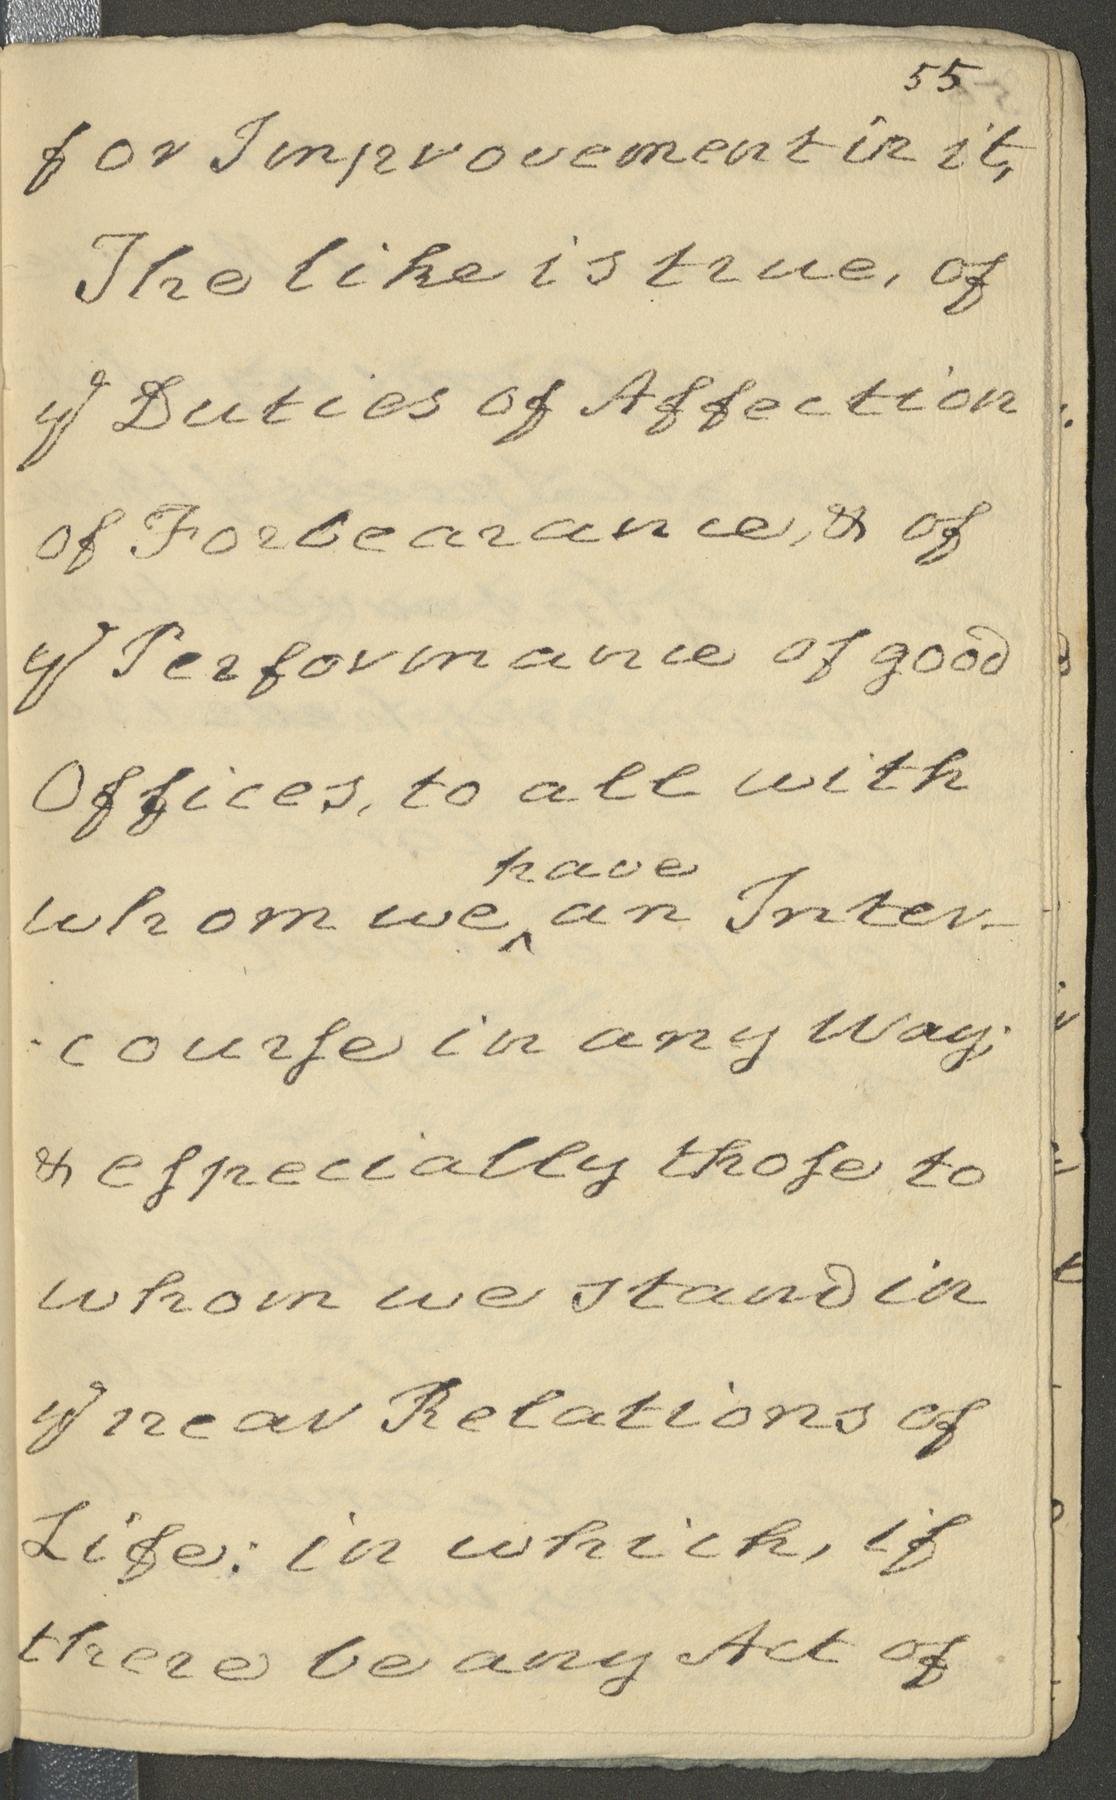 55
for Improvement in it,
The like is true, of
yᵉ Duties of Affection
of Forbearance, & of
yᵉ Performance of good
Offices, to all with
have
whom we ‸ an Inter-
-courſe in any Way;
& eſpecially thoſe to
whom we stand in
yᵉ near Relations of
Life: in which, if
there be any Act of